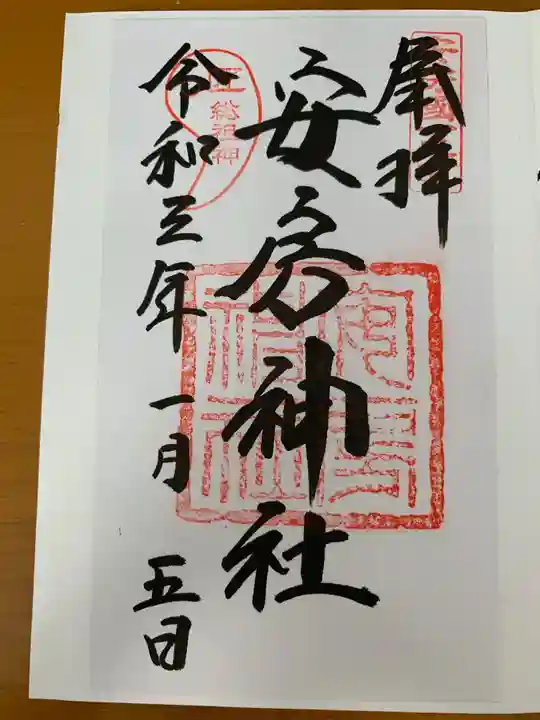 奉拝
安房神社
令和三年一月五日
総祖神
安房
神社